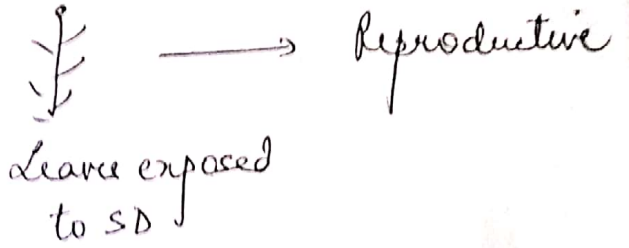 Reproductive
Leaves exposed
to SD